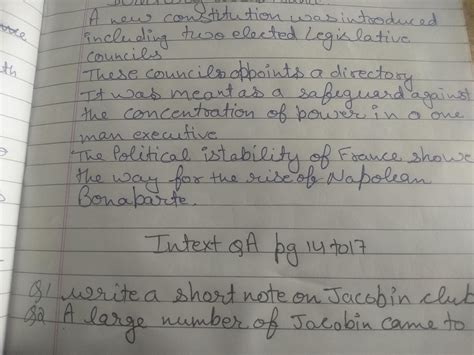 A new constitution was introduced
including two elected Legislative
councils
These councils appoints a directory
It was meant as a safeguard against
the concentration of power in a one
man executive
The Political istability of France shows
the way for the rise of Napolean
Bonaparte.
Intext QA pg 14 to 17
Q1 write a short note on Jacobin club
Q2 A large number of Jacobin came to